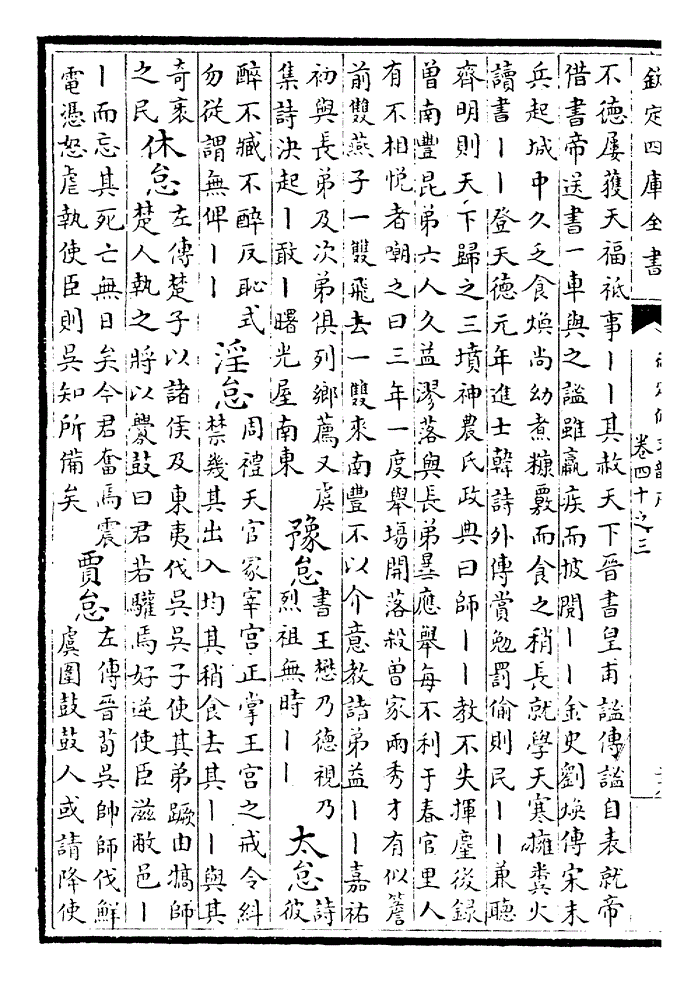 欽定四庫全書
卷四十之三
不德屢獲天福祗事丨丨其赦天下晉書皇甫謐傳謐自表就帝
借書帝送書一車與之謐雖羸疾而披閱丨丨金史劉煥傳宋末
兵起城中久乏食煥尚幼煮糠覈而食之稍長就學天寒擁糞火
讀書丨丨登天德元年進士韓詩外傳賞勉罰偷則民丨丨兼聽
齊明則天下歸之三墳神農氏政典曰師丨丨教不失揮麈後錄
曾南豐昆弟六人久益漻落與長弟曅應舉每不利于春官里人
有不相悅者嘲之曰三年一度舉場開落殺曾家兩秀才有似簷
前雙燕子一雙飛去一雙來南豐不以介意教諸弟益丨丨嘉祐
初與長弟及次弟俱列鄉薦又虞
集詩決起丨敢丨曙光屋南東
豫怠
書王懋乃德視乃
烈祖無時丨丨
太怠
詩
彼
醉不臧不醉反恥式
勿從謂無俾丨丨
淫怠
周禮天官冢宰宮正掌王宮之戒令糾
禁幾其出入均其稍食去其丨丨與其
奇衺
之民
休怠
左傳楚子以諸侯及東夷伐吳吳子使其弟蹶由犒師
楚人執之將以釁鼓曰君若驩焉好逆使臣滋敝邑丨
丨而忘其死亡無日矣今君奮焉震
電憑怒虐執使臣則吳知所備矣
賈怠
左傳晉荀吳帥師伐鮮
虞圍鼓鼓人或請降使